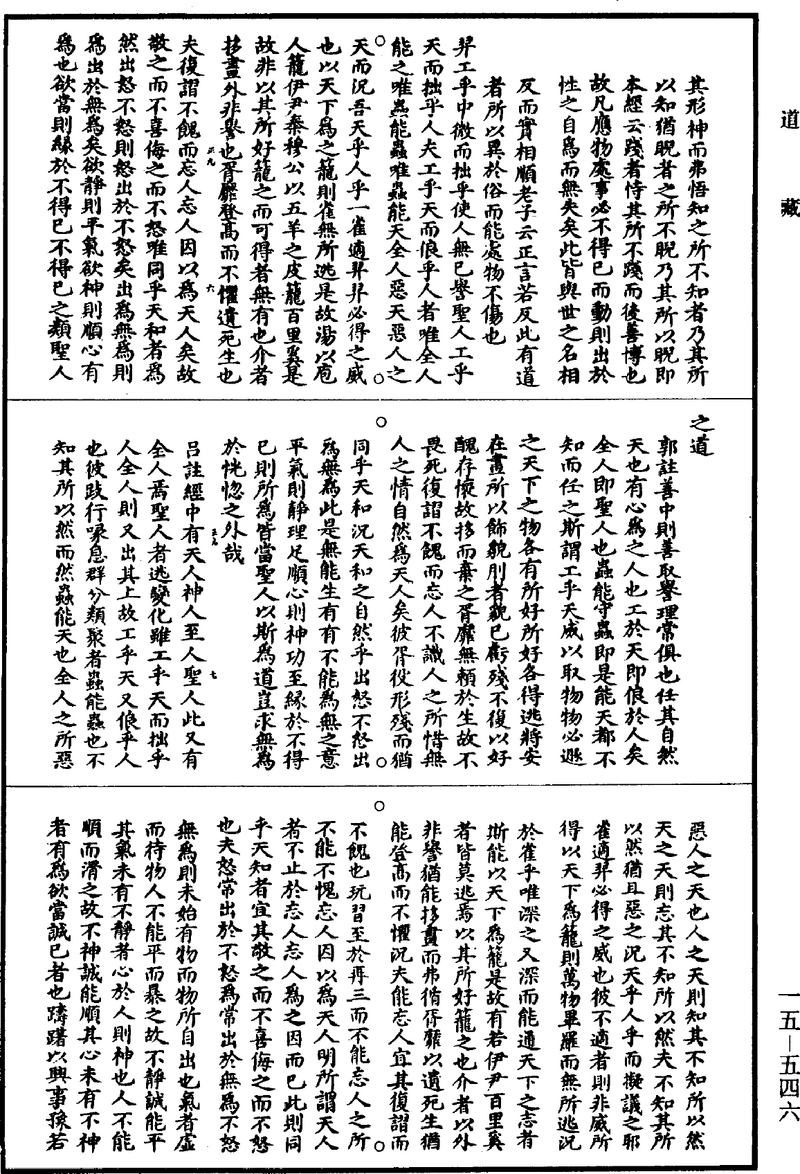 道藏
其形神而弗悟知之所不知者乃其所
以知猶睨者之所不睨乃其所以睨即
本經云踐者恃其所不踐而後善博也
故凡應物處事必不得已而動則出於
性之自為而無失矣此皆與世之名相
反而實相順老子云正言若反此有道
者所以異於俗而能處物不傷也
羿工乎中微而拙乎使人無已譽聖人工乎
天而拙乎人夫工乎天而俍乎人者唯全人
能之唯蟲能蟲唯蟲能天全人惡天惡人之
天而況吾天乎人乎一雀適羿羿必得之威
也以天下為之籠則雀無所逃是故湯以庖
人籠伊尹秦穆公以五羊之皮籠百里奚是
故非以其所好籠之而可得者無有也介者
拸畫外非譽也胥靡登高而不懼遺死生也
夫復謵不餽而忘人忘人因以為天人矣故
敬之而不喜侮之而不怒唯同乎天和者為
然出怒不怒則怒出於不怒矣出為無為則
為出於無為矣欲靜則平氣欲神則順心有
為也欲當則緣於不得已不得已之類聖人
之道
郭註善中則善取譽理常俱也任其自然
天也有心為之人也工於天即俍於人矣
全人即聖人也蟲能守蟲即是能天都不
知而任之斯謂工乎天威以取物物必逃
之天下之物各有所好所好各得逃將安
在畫所以飾貌刖者貌已虧殘不復以好
醜存懷故拸而棄之胥靡無賴於生故不
畏死復謵不餽而忘人不識人之所惜無
人之情自然為天人矣彼胥役形殘而猶
同乎天和況天和之自然乎出怒不怒出
為無為此是無能生有有不能為無之意
平氣則靜理足順心則神功至緣於不得
已則所為皆當聖人以斯為道豈求無為
於恍惚之外哉
呂註經中有天人神人至人聖人此又有
全人焉聖人者逃變化雖工乎天而拙乎
人全人則又出其上故工乎天又俍乎人
也彼跂行喙息群分類聚者蟲能蟲也不
知其所以然而然蟲能天也全人之所惡
惡人之天也人之天則知其不知所以然
天之天則忘其不知所以然夫不知其所
以然猶且惡之況天乎人乎而擬議之耶
雀適羿必得之威也彼不適者則非威所
得以天下為籠則萬物畢羅而無所逃況
於雀乎唯深之又深而能通天下之志者
斯能以天下為籠是故有若伊尹百里奚
者皆莫逃焉以其所好籠之也介者以外
非譽猶能拸畫而弗脩胥靡以遺死生猶
能登高而不懼況夫能忘人宜其復謵而
不餽也玩習至於再三而不能忘人之所
不能不愧忘人因以為天人明所謂天人
者不止於忘人忘人為之因而已此則同
乎天知者宜其敬之而不喜侮之而不怒
也夫怒常出於不怒為常出於無為不怒
無為則未始有物而物所自出也氣者虛
而待物人不能平而暴之故不靜誠能平
其氣未有不靜者心於人則神也人不能
順而滑之故不神誠能順其心未有不神
者有為欲當誠已者也躊躇以興事揆若
一五—五四六